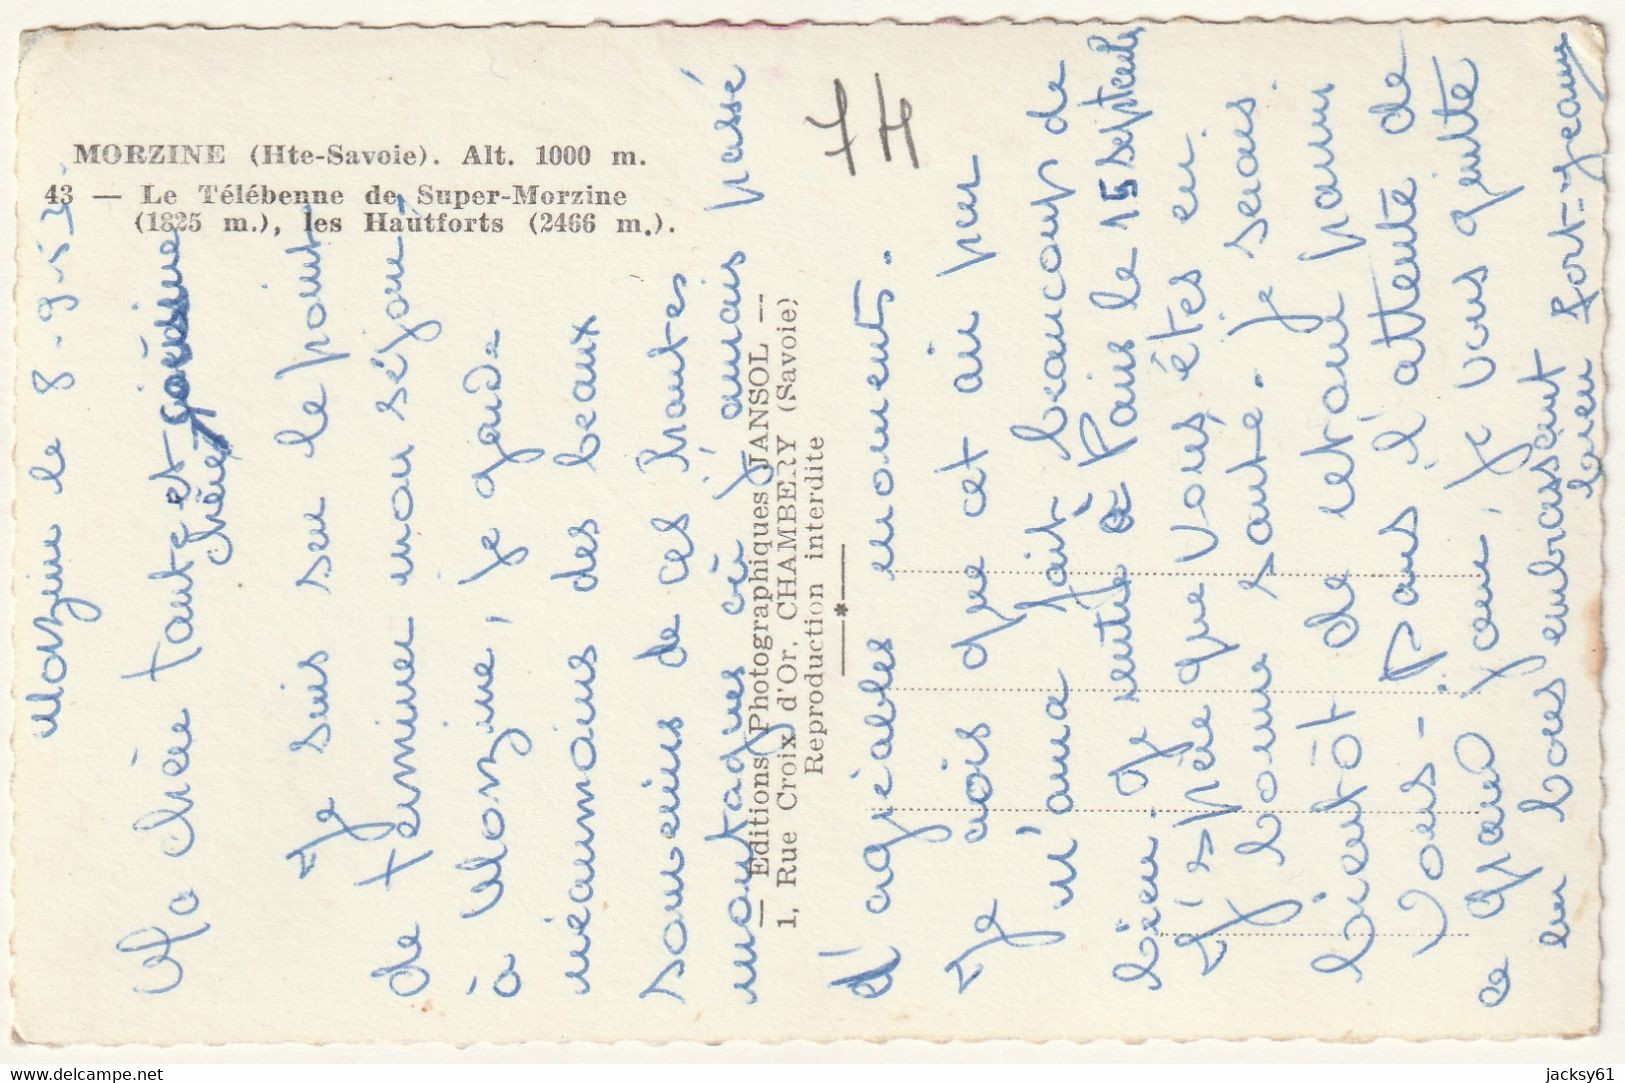 MORZINE (Hte-Savoie). Alt. 1000 m.
43 — Le Télébenne de Super-Morzine
(1825 m.), les Hautforts (2466 m.).
— Editions Photographiques JANSOL —
1, Rue Croix d'Or, CHAMBERY (Savoie)
Reproduction interdite
74
Morzine le 8-9-53
Ma chère tante et
chère
Je suis sur le point
de terminer mon séjour
à Morzine, je garde
néanmoins des beaux
souvenirs de ces hautes
montagnes où j'amais passé
d'agréables moments.
Je crois que cet air pur
m'aura fait beaucoup de
bien. Je rentre à Paris le 15 septemb
J'espère que vous êtes en
bonne santé. Je serais
bientôt de retour parmi
vous - Dans l'attente de
ce grand jour, je vous quitte
en vous embrassant
bien fort - Jean
jacksy61